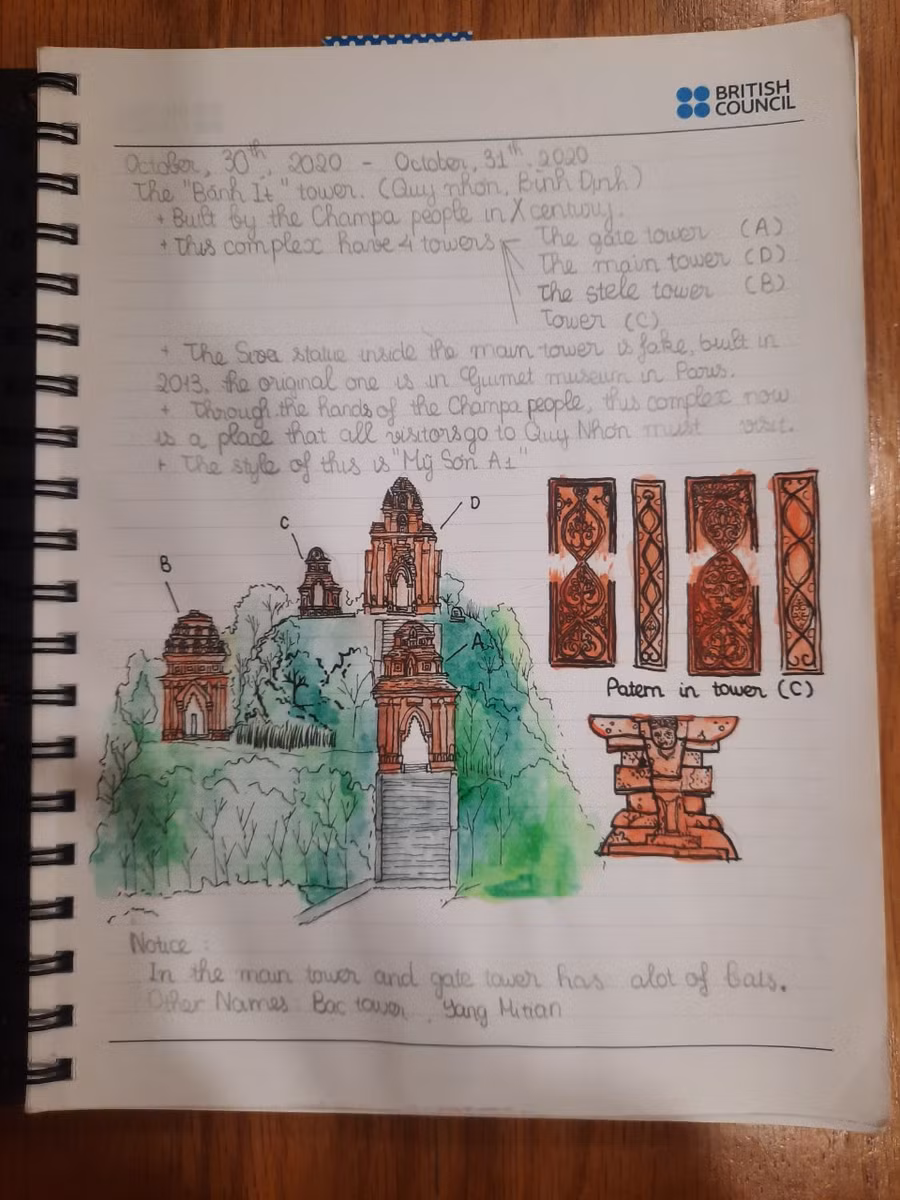 BRITISH
COUNCIL
October, 30th, 2020 - October, 31th, 2020
The "Bánh Ít" tower. (Quy nhơn, Bình Định)
+ Built by the Champa people in X century.
+ This complex have 4 towers
The gate tower (A)
The main tower (D)
The stele tower (B)
Tower (C)
+ The Siva statue inside the main tower is fake, built in
2013, the original one is in Guimet museum in Paris.
+ Through the hands of the Champa people, this complex now
is a place that all visitors go to Quy Nhơn must visit.
+ The style of this is "Mỹ Sơn A1"
D
C
B
A
Patern in tower (C)
Notice :
In the main tower and gate tower has alot of bats.
Other Names Bac tower, Yang Mtian